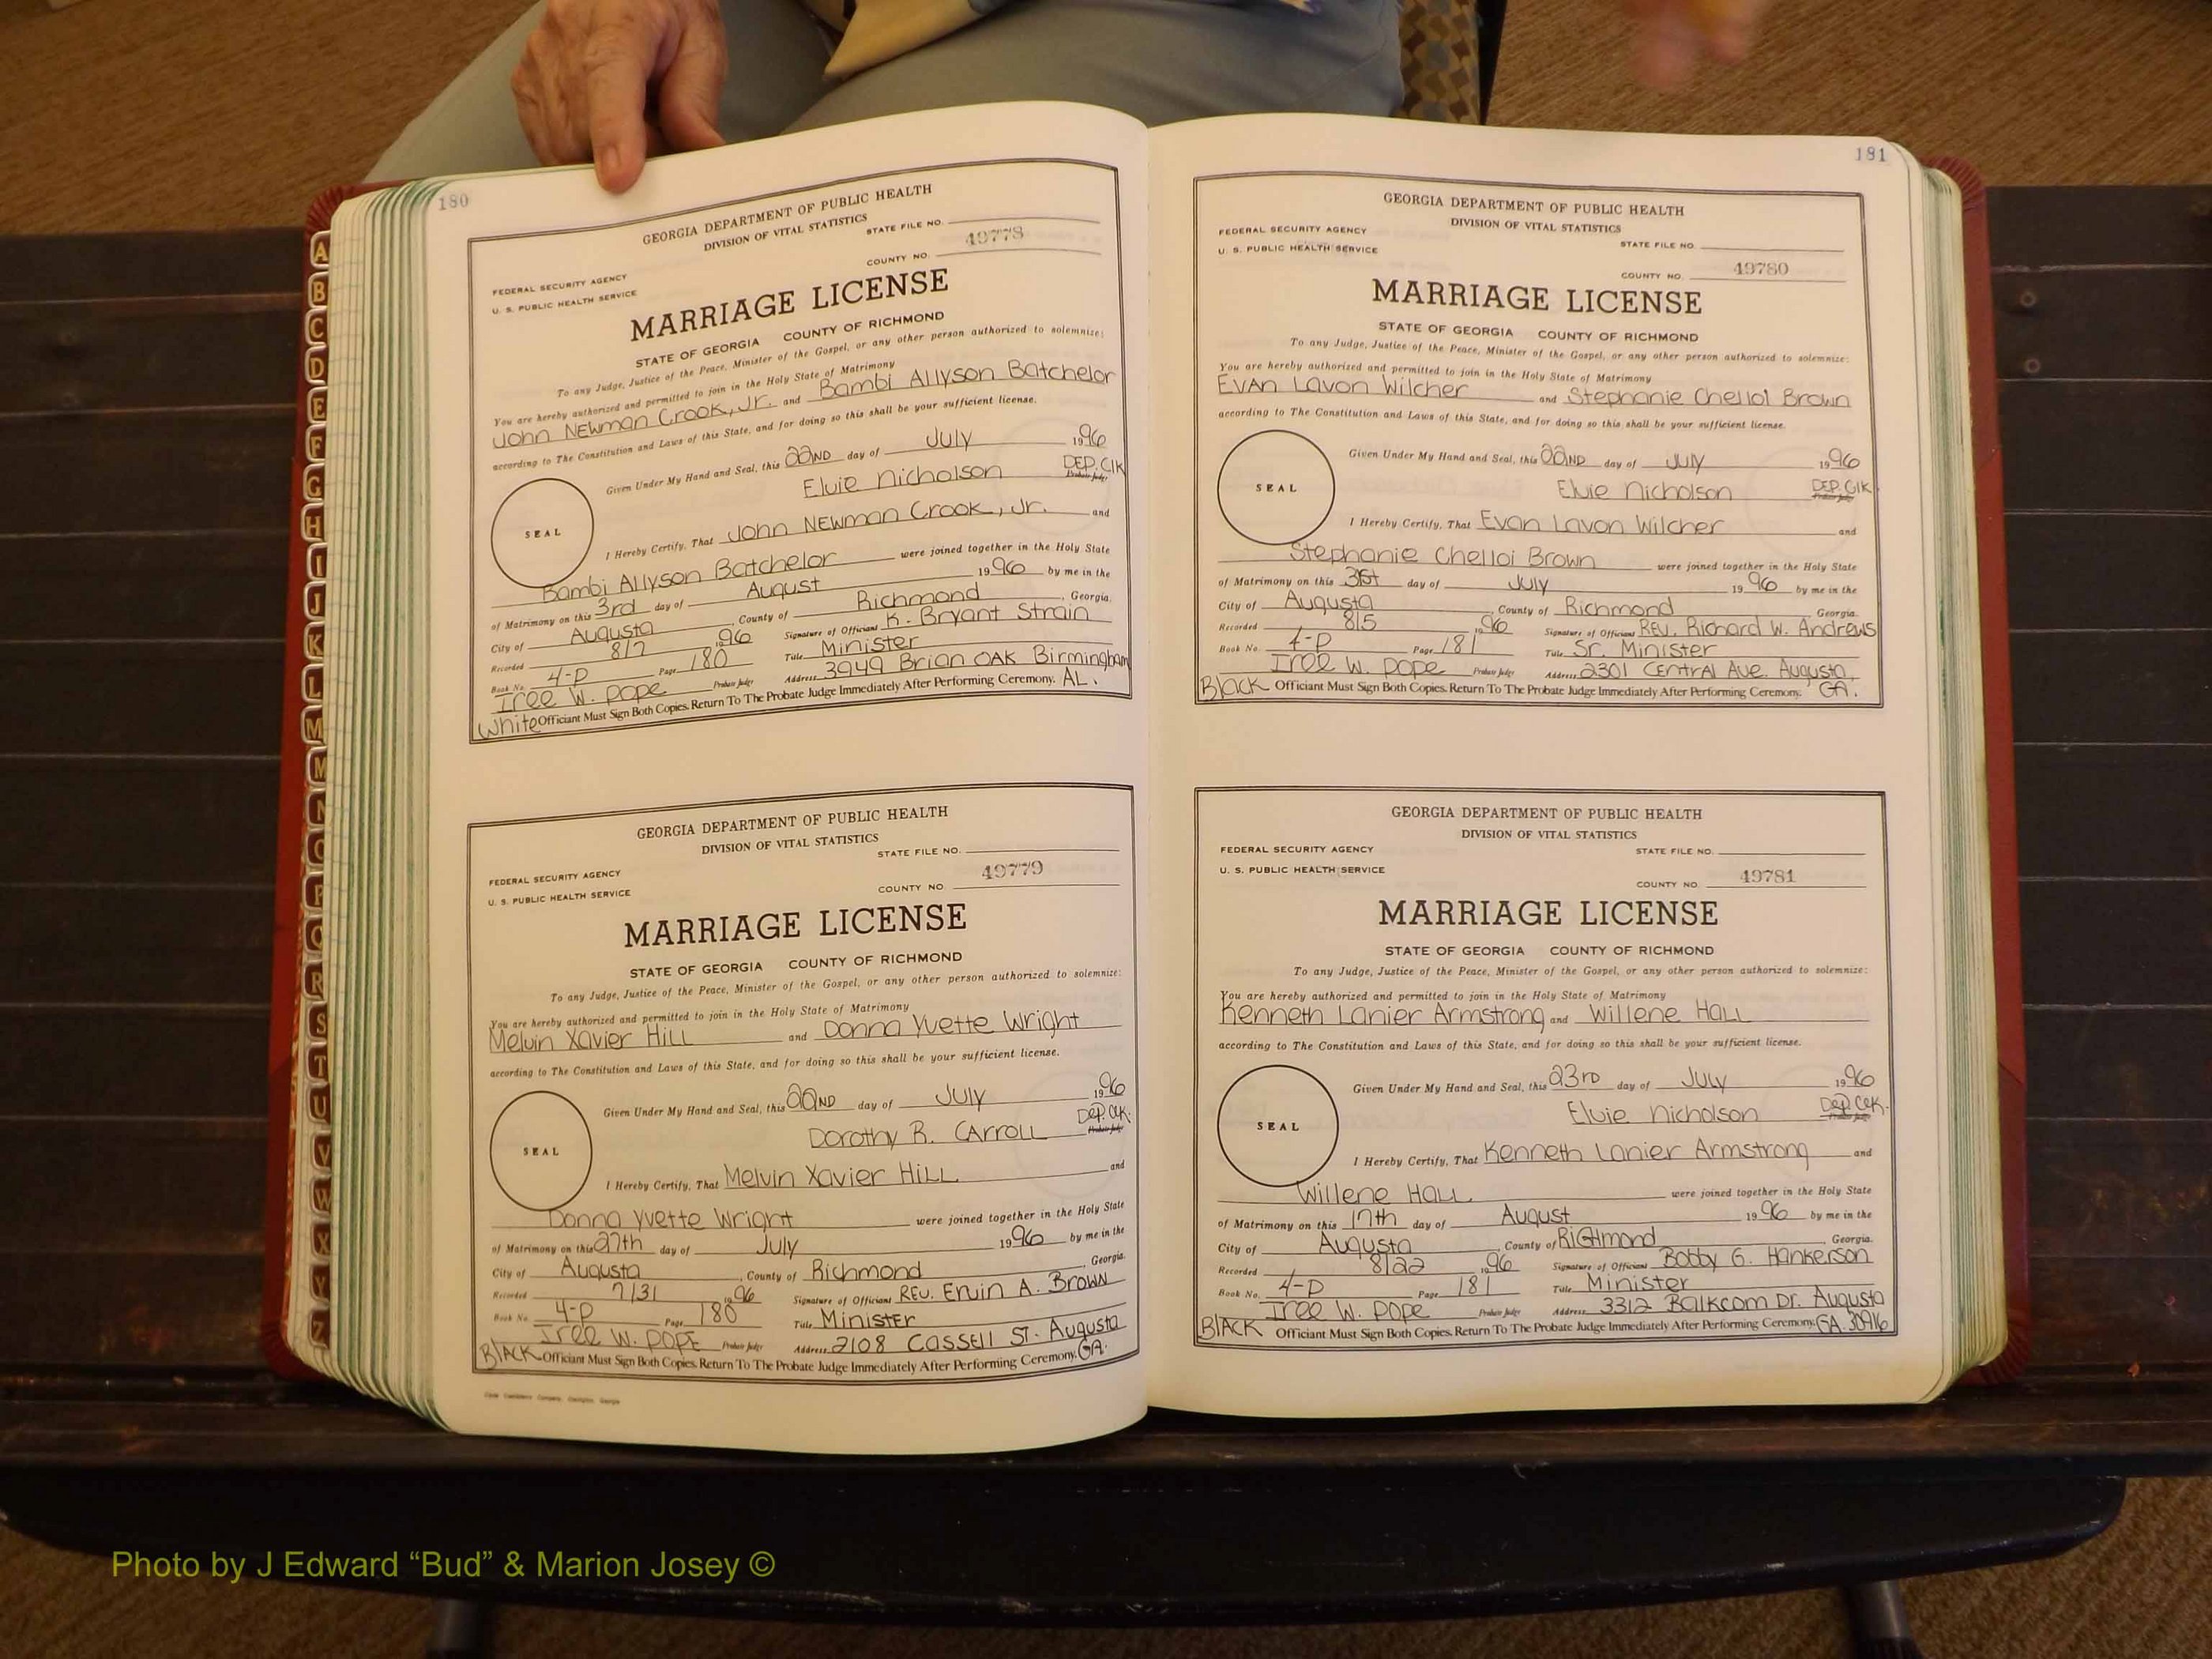 180
GEORGIA DEPARTMENT OF PUBLIC HEALTH
DIVISION OF VITAL STATISTICS
STATE FILE NO.
49778
COUNTY NO.
FEDERAL SECURITY AGENCY
U. S. PUBLIC HEALTH SERVICE
MARRIAGE LICENSE
STATE OF GEORGIA COUNTY OF RICHMOND
To any Judge, Justice of the Peace, Minister of the Gospel, or any other person authorized to solemnize:
You are hereby authorized and permitted to join in the Holy State of Matrimony
John Newman Crook, Jr. and Bambi Allyson Batchelor
according to The Constitution and Laws of this State, and for doing so this shall be your sufficient license.
Given Under My Hand and Seal, this 22ND day of July 1996
Elvie Nicholson DEP. Clk
Probate Judge
SEAL
I Hereby Certify, That John Newman Crook, Jr. and
Bambi Allyson Batchelor were joined together in the Holy State
of Matrimony on this 3rd day of August 1996 by me in the
City of Augusta, County of Richmond, Georgia.
Recorded 8/7 1996 Signature of Officiant K. Bryant Strain
Book No. 4-P Page 180 Title Minister
Tree W. Pope Probate Judge Address 3949 Brian OAK Birmingham
White Officiant Must Sign Both Copies. Return To The Probate Judge Immediately After Performing Ceremony. AL.
GEORGIA DEPARTMENT OF PUBLIC HEALTH
DIVISION OF VITAL STATISTICS
STATE FILE NO.
49779
COUNTY NO.
FEDERAL SECURITY AGENCY
U. S. PUBLIC HEALTH SERVICE
MARRIAGE LICENSE
STATE OF GEORGIA COUNTY OF RICHMOND
To any Judge, Justice of the Peace, Minister of the Gospel, or any other person authorized to solemnize:
You are hereby authorized and permitted to join in the Holy State of Matrimony
Melvin Xavier Hill and Donna Yvette Wright
according to The Constitution and Laws of this State, and for doing so this shall be your sufficient license.
Given Under My Hand and Seal, this 22ND day of July 1996
Dorothy R. CARROLL Dep. Clk.
Probate Judge
SEAL
I Hereby Certify, That Melvin Xavier Hill and
Donna Yvette Wright were joined together in the Holy State
of Matrimony on this 27th day of July 1996 by me in the
City of Augusta, County of Richmond, Georgia.
Recorded 7/31 1996 Signature of Officiant REV. Ervin A. Brown
Book No. 4-P Page 180 Title Minister
Tree W. POPE Probate Judge Address 2108 Cassell St. Augusta
BLACK Officiant Must Sign Both Copies. Return To The Probate Judge Immediately After Performing Ceremony. GA.
181
GEORGIA DEPARTMENT OF PUBLIC HEALTH
DIVISION OF VITAL STATISTICS
FEDERAL SECURITY AGENCY
U. S. PUBLIC HEALTH SERVICE
STATE FILE NO.
COUNTY NO. 49780
MARRIAGE LICENSE
STATE OF GEORGIA COUNTY OF RICHMOND
To any Judge, Justice of the Peace, Minister of the Gospel, or any other person authorized to solemnize:
You are hereby authorized and permitted to join in the Holy State of Matrimony
Evan Lavon Wilcher and Stephanie Chelloi Brown
according to The Constitution and Laws of this State, and for doing so this shall be your sufficient license.
Given Under My Hand and Seal, this 22ND day of July 1996
Elvie Nicholson DEP. Clk.
Probate Judge
SEAL
I Hereby Certify, That Evan Lavon Wilcher and
Stephanie Chelloi Brown were joined together in the Holy State
of Matrimony on this 31st day of July 1996 by me in the
City of Augusta, County of Richmond Georgia.
Recorded 8/5 1996 Signature of Officiant REV. Richard W. Andrews
Book No. 4-P Page 181 Title Sr. Minister
Tree W. Pope Probate Judge Address 2301 Central Ave. Augusta,
Black Officiant Must Sign Both Copies. Return To The Probate Judge Immediately After Performing Ceremony. GA.
GEORGIA DEPARTMENT OF PUBLIC HEALTH
DIVISION OF VITAL STATISTICS
FEDERAL SECURITY AGENCY
U. S. PUBLIC HEALTH SERVICE
STATE FILE NO.
COUNTY NO. 49781
MARRIAGE LICENSE
STATE OF GEORGIA COUNTY OF RICHMOND
To any Judge, Justice of the Peace, Minister of the Gospel, or any other person authorized to solemnize:
You are hereby authorized and permitted to join in the Holy State of Matrimony
Kenneth Lanier Armstrong and Willene Hall
according to The Constitution and Laws of this State, and for doing so this shall be your sufficient license.
Given Under My Hand and Seal, this 23rd day of July 1996
Elvie Nicholson Dep. Clk.
Probate Judge
SEAL
I Hereby Certify, That Kenneth Lanier Armstrong and
Willene Hall were joined together in the Holy State
of Matrimony on this 17th day of August 1996 by me in the
City of Augusta, County of Richmond, Georgia.
Recorded 8/22 1996 Signature of Officiant Bobby G. Hankerson
Book No. 4-P Page 181 Title Minister
Tree W. Pope Probate Judge Address 3312 Balkcom Dr. Augusta
BLACK Officiant Must Sign Both Copies. Return To The Probate Judge Immediately After Performing Ceremony. GA. 30916
A
B
C
D
E
F
G
H
I
J
K
L
M
M
N
O
P
Q
R
S
T
U
V
W
X
Y
Z
Photo by J Edward “Bud” & Marion Josey ©